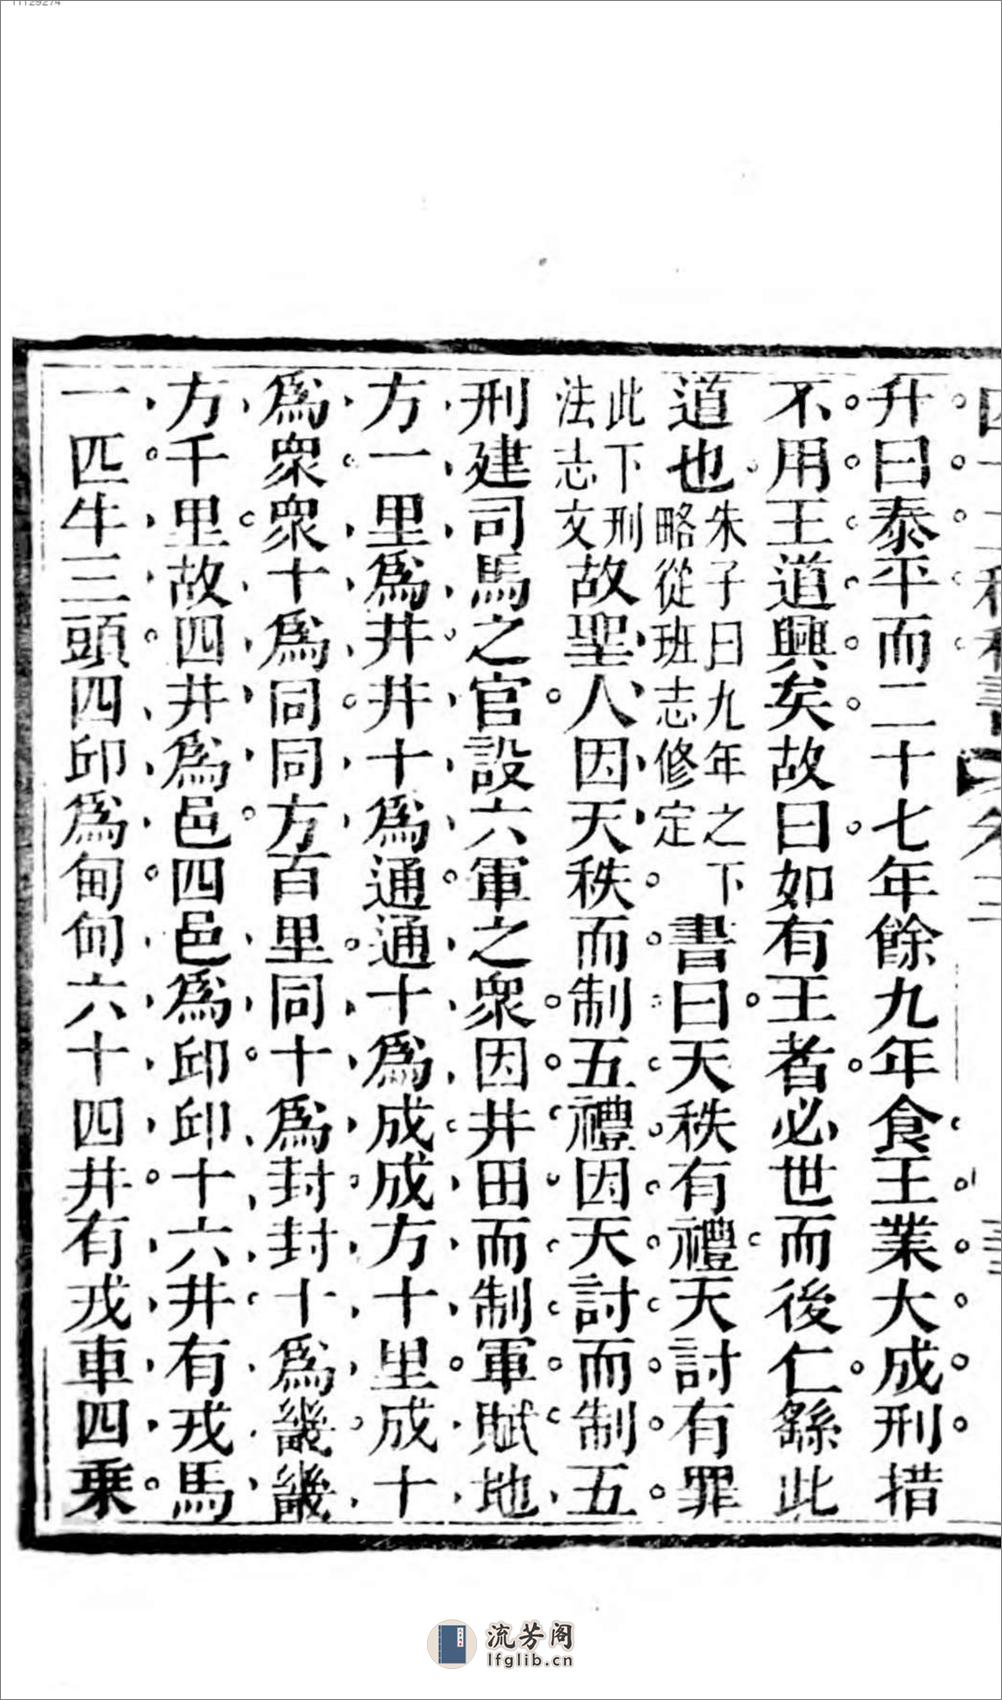 升曰泰平而二十七年餘九年食王業大成刑措
不用王道興矣故曰如有王者必世而後仁繇此
道也朱子曰九年之下略從班志修定書曰天秩有禮天討有罪
此下刑法志文故聖人因天秩而制五禮因天討而制五
刑建司馬之官設六軍之衆因井田而制軍賦地
方一里爲井井十爲通通十爲成成方十里成十
爲衆衆十爲同同方百里同十爲封封十爲畿畿
方千里故四井爲邑四邑爲邱邱十六井有戎馬
一匹牛三頭四邱爲甸甸六十四井有戎車四乗
流芳阁
lfglib.cn